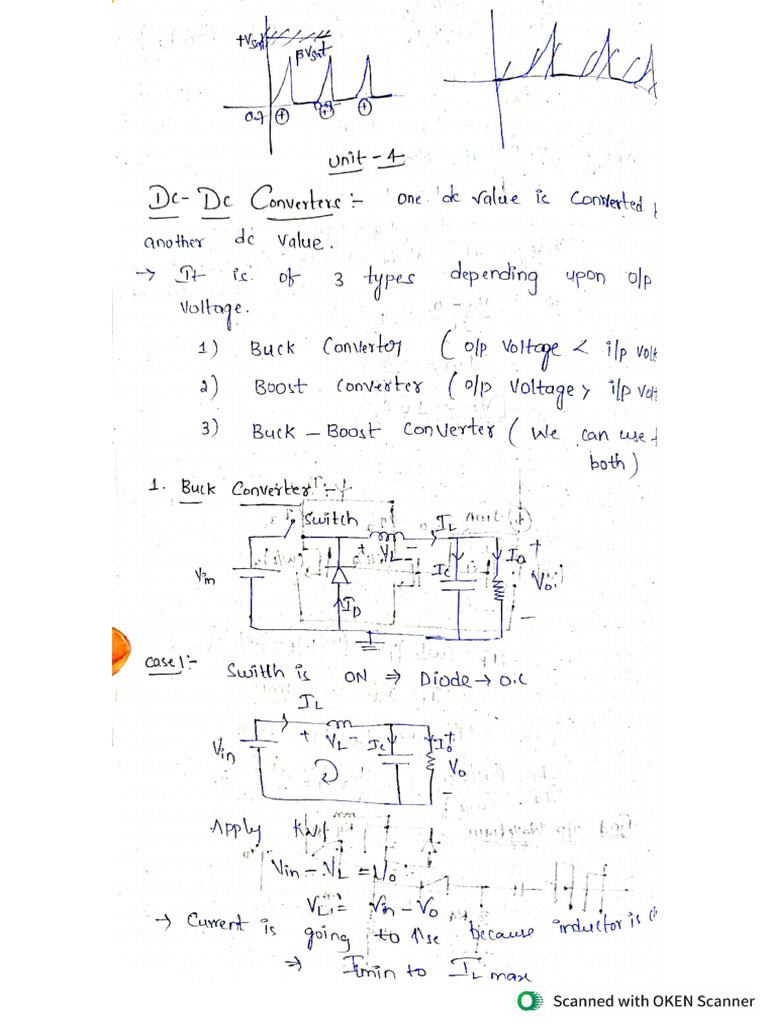 +Vsat
βVsat
0.7
Unit - 4
Dc- Dc Converters :- one dc value is converted
another dc value.
→ It is of 3 types depending upon o/p
voltage.
1) Buck Convertor (o/p voltage < i/p volt
2) Boost Converter (o/p voltage > i/p vol
3) Buck - Boost Converter (We can use
both)
1. Buck Converter :-
Switch
IL
+ VL -
Vin
Ic
Io +
Vo
-
ID
Case 1 :- Switch is ON ⇒ Diode → O.C
IL
+ VL -
Vin
Ic
Io +
Vo
-
Apply KVL
Vin - VL = Vo
VL = Vin - Vo
→ Current is going to rise because inductor is
⇒ Imin to IL max
Scanned with OKEN Scanner